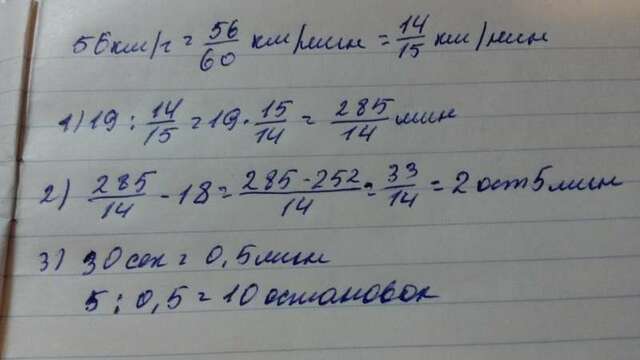 56км/ч = 56/60 км/мин = 14/15 км/мин
1) 19 : 14/15 = 19 · 15/14 = 285/14 мин
2) 285/14 - 18 = 285-252/14 = 33/14 = 2 ост 5 мин
3) 30 сек = 0,5 мин
5 : 0,5 = 10 остановок